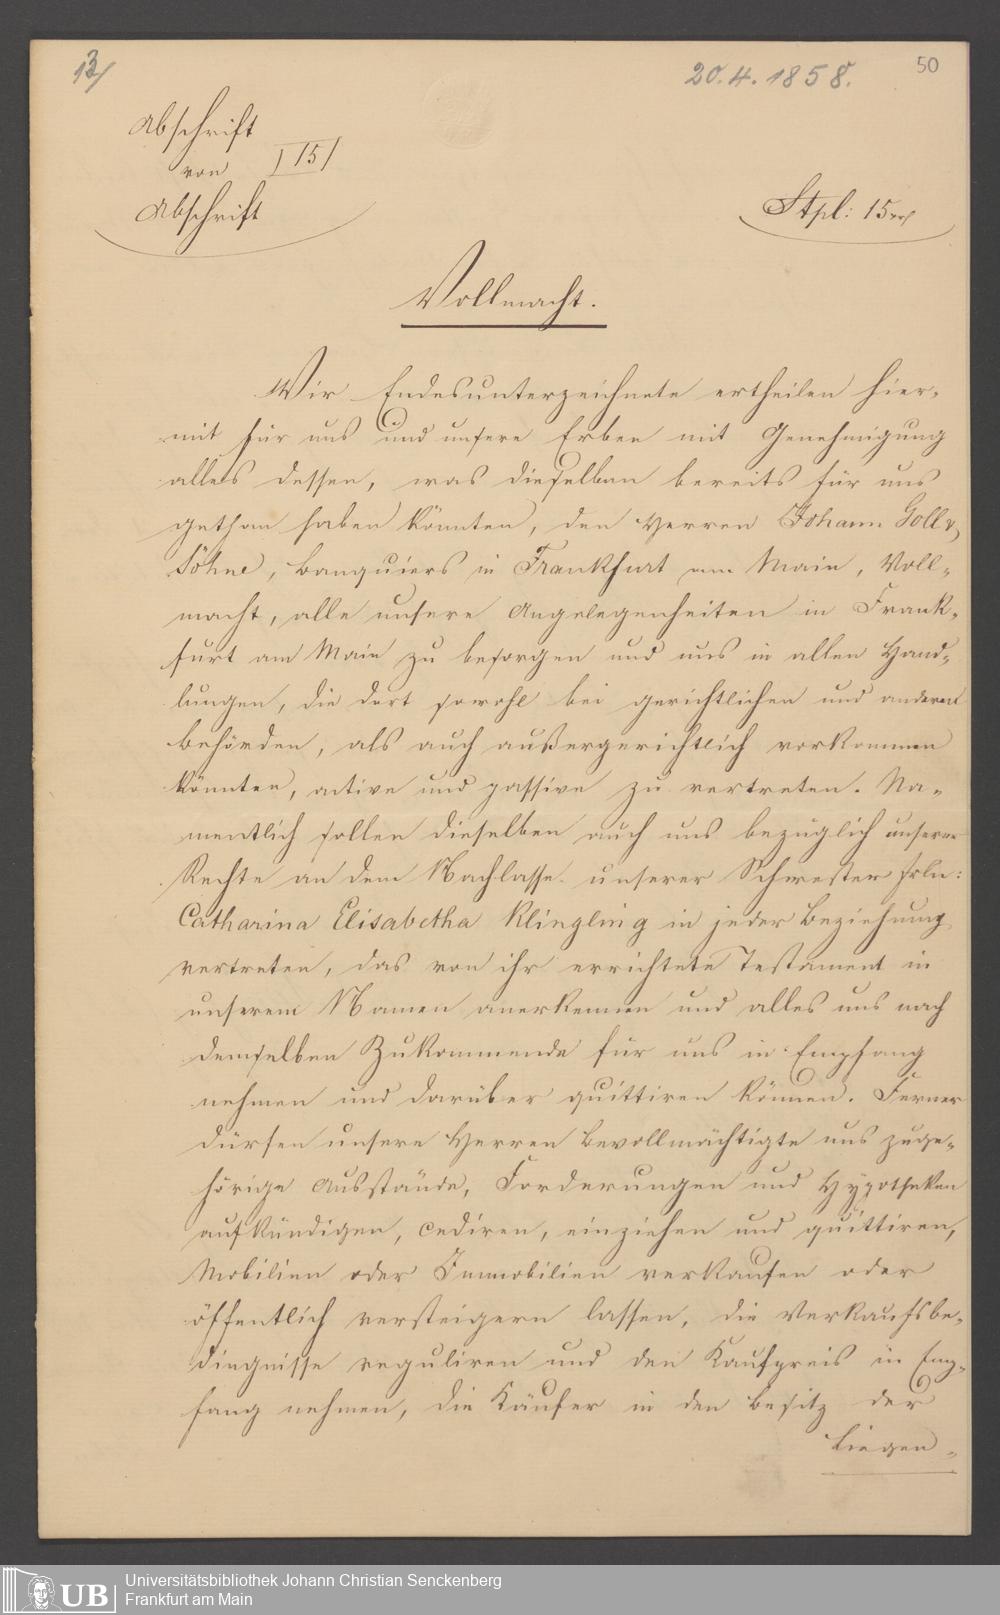 13/
20.4.1858.
50
Abschrift
von
Abschrift
15
Stpl: 15
Vollmacht.
Wir Endesunterzeichnete ertheilen hier-
mit für uns und unsere Erben mit Genehmigung
alles dessen, was dieselben bereits für uns
gethan haben könnten, den Herren Johann Goll &
Söhne, Banquiers in Frankfurt am Main, Voll-
macht, alle unsere Angelegenheiten in Frank-
furt am Main zu besorgen und uns in allen Hand-
lungen, die dort sowohl bei gerichtlichen und anderen
Behörden, als auch außergerichtlich vorkommen
könnten, active und passive zu vertreten. Na-
mentlich sollen dieselben auch uns bezüglich unserer
Rechte an dem Nachlasse unserer Schwester Frln:
Catharina Elisabetha Klingling in jeder Beziehung
vertreten, das von ihr errichtete Testament in
unserem Namen anerkennen und alles uns nach
demselben Zukommende für uns in Empfang
nehmen und darüber quittiren können. Ferner
dürfen unsere Herren Bevollmächtigte uns zuge-
hörige Ausstände, Forderungen und Hypotheken
aufkündigen, cediren, einziehen und quittiren,
Mobilien oder Immobilien verkaufen oder
öffentlich versteigern lassen, die Verkaufsbe-
dingnisse reguliren und den Kaufpreis in Emp-
fang nehmen, die Käufer in den Besitz der
Liegen-
UB
Universitätsbibliothek Johann Christian Senckenberg
Frankfurt am Main